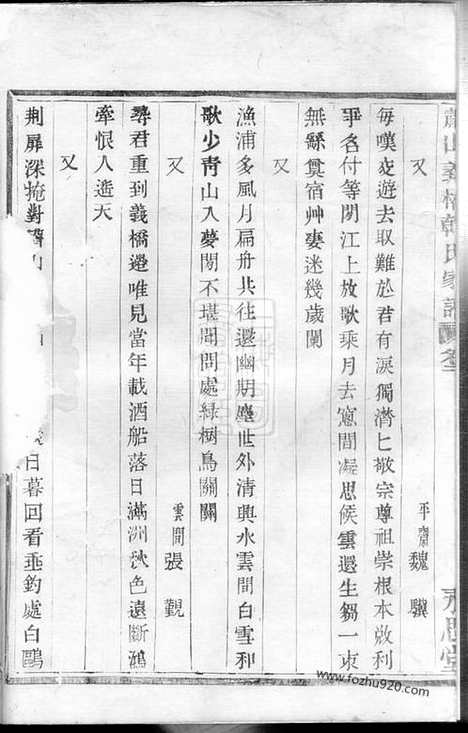 蕭山義橋韓氏家譜 卷
永思堂
又 平齋魏驥
每嘆交遊去取難於君有淚獨濟匕敬宗尊祖崇根本放利
爭名付等閑江上放歌乘月去窻間凝思候雲還生芻一束
無繇奠宿艸萋迷幾歲闌
又
漁浦多風月扁舟共往還幽期塵世外清興水雲間白雪和
歌少青山入夢閑不堪聞問處綠樹鳥關關
又 雲間張觀
尋君重到義橋邊唯見當年載酒船落日滿洲秋色遠斷鴻
牽恨人遥天
又
荆扉深掩對
日暮回看垂釣處白鷗
www.fozhu920.com